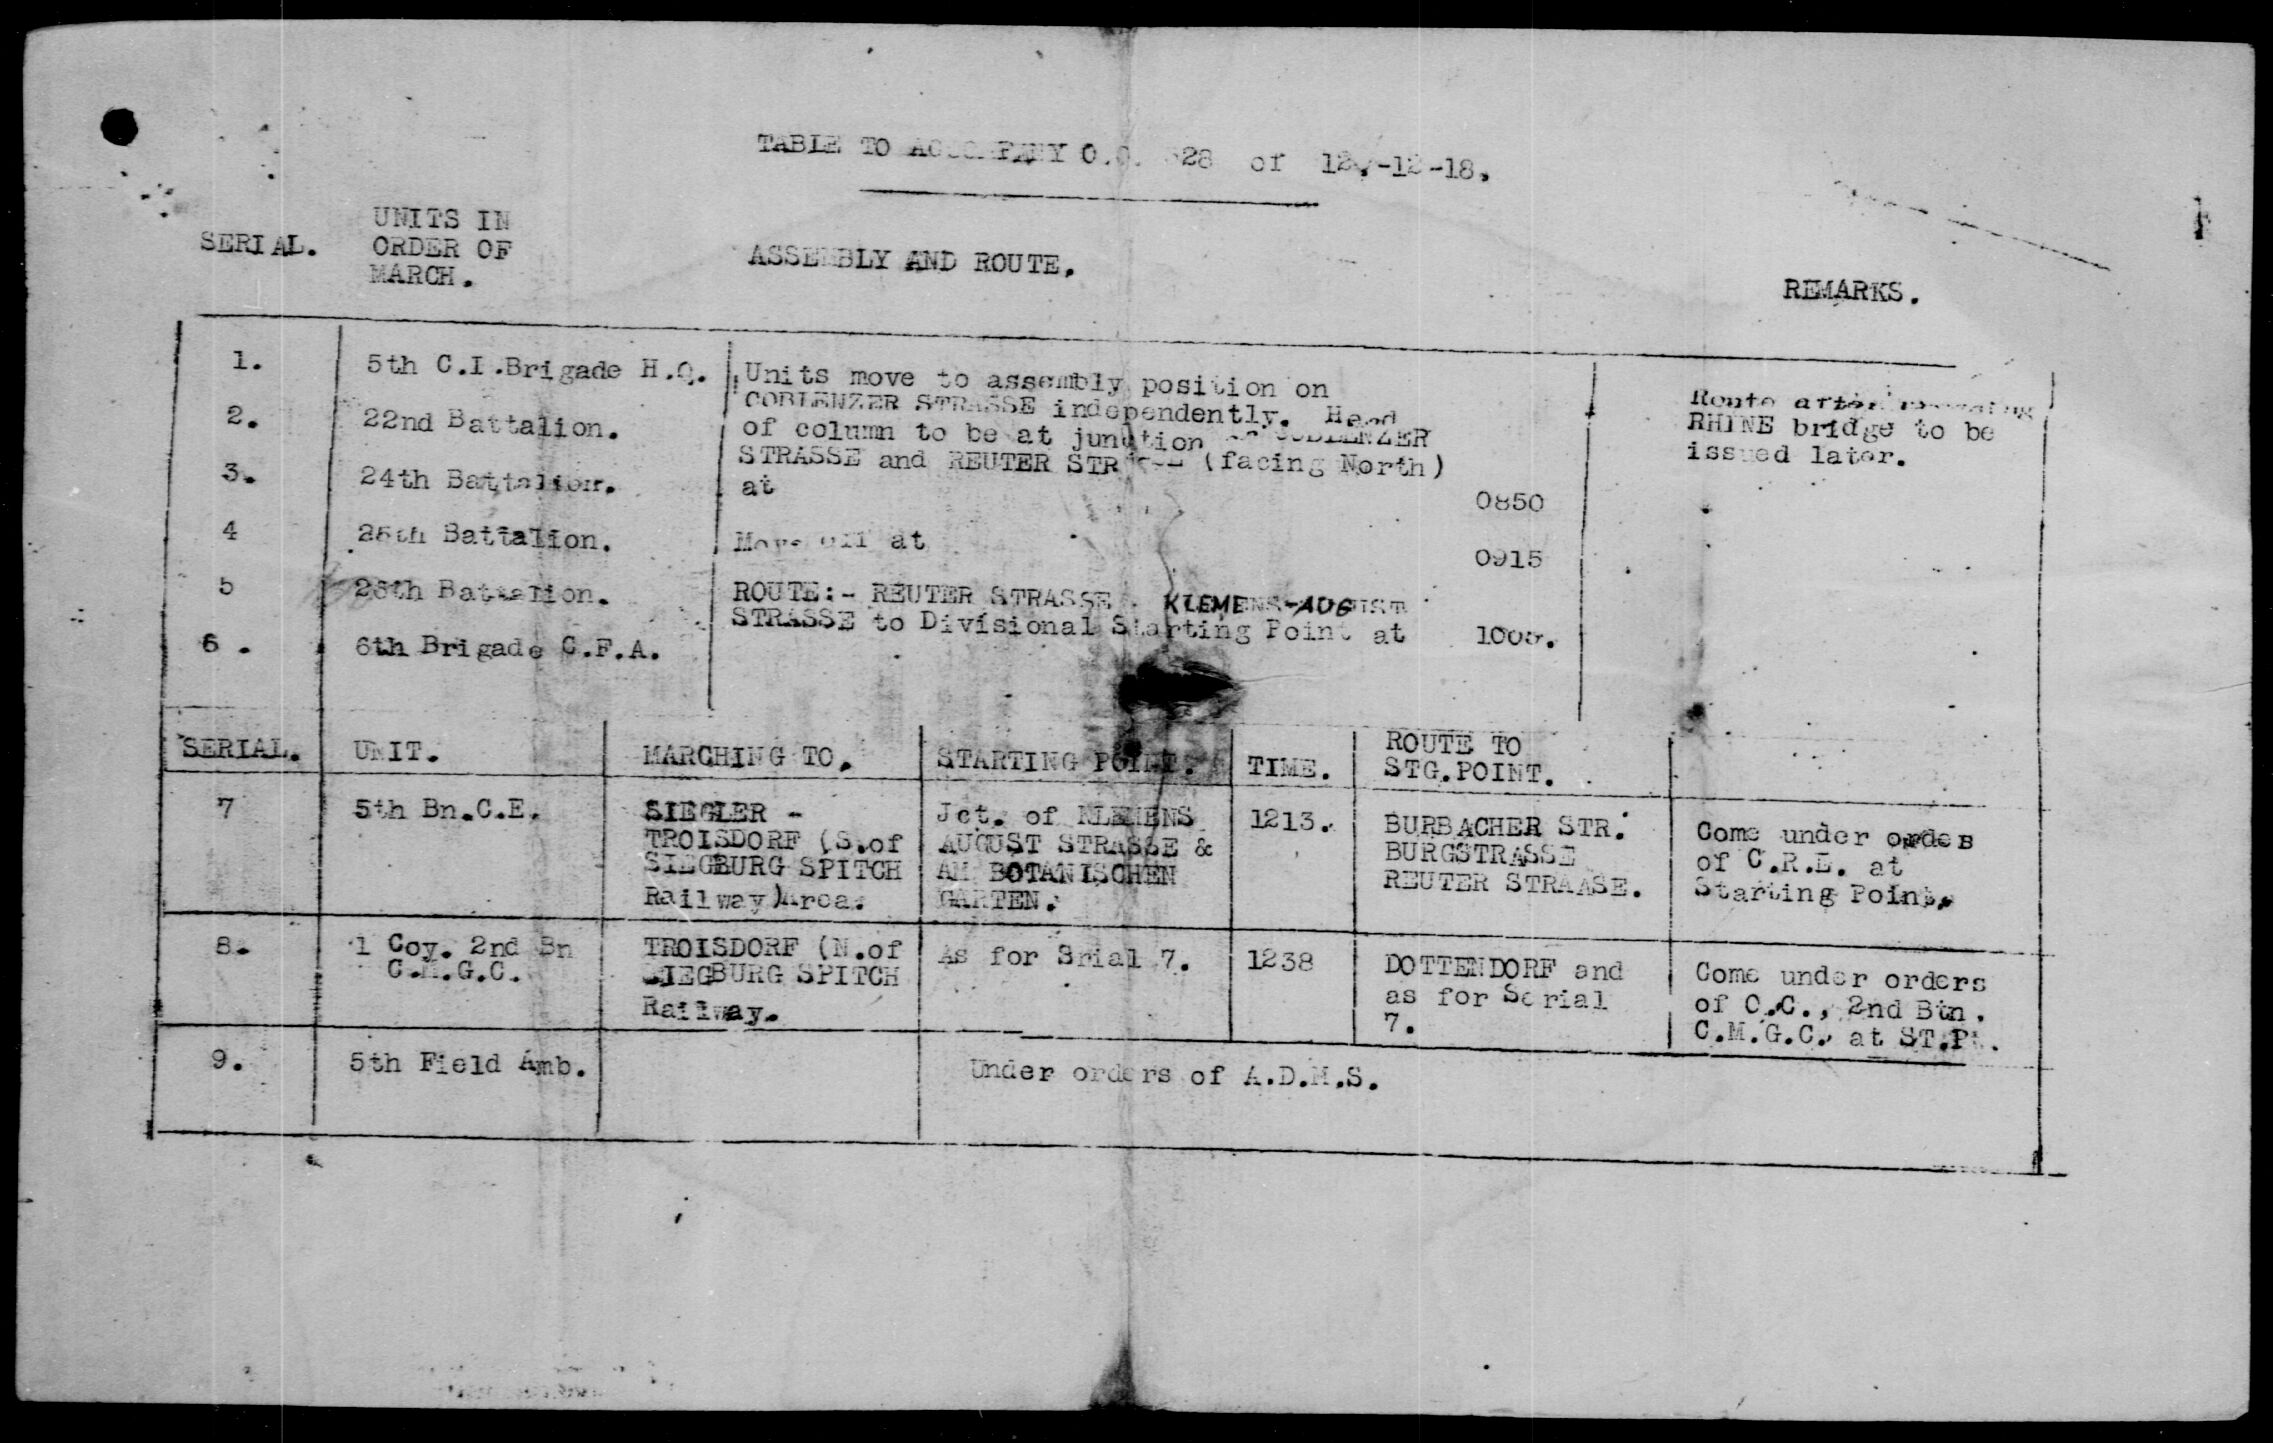 TABLE TO ACCOMPANY O.O. 28 of 12-12-18.
SERIAL.
UNITS IN
ORDER OF
MARCH.
ASSEMBLY AND ROUTE.
REMARKS.
1. 5th C.I.Brigade H.Q.
2. 22nd Battalion.
3. 24th Battalion.
4 25th Battalion.
5 26th Battalion.
6. 6th Brigade C.F.A.
Units move to assembly position on
COBLENZER STRASSE independently. Head
of column to be at junction of COBLENZER
STRASSE and REUTER (facing North)
at 0850
Move off at 0915
ROUTE:- REUTER STRASSE KLEMENS-AUGUST
STRASSE to Divisional Starting Point at
Route after
RHINE bridge to be
issued later.
SERIAL. UNIT. MARCHING TO. STARTING POINT. TIME. ROUTE TO
STG.POINT.
7 5th Bn.C.E.
SIEGLER -
TROISDORF (S.of
SIEGBURG SPITCH
Railway)Area.
Jct. of KLEMENS
AUGUST STRASSE &
AM BOTANISCHEN
GARTEN.
1213.
BURBACHER STR.
BURGSTRASSE
REUTER STRAASE.
Come under orders
of C.R.E. at
Starting Point.
8. 1 Coy. 2nd Bn
C.M.G.C.
TROISDORF (N.of
SIEGBURG SPITCH
Railway.
As for Srial 7.
1238
DOTTENDORF and
as for Serial
7.
Come under orders
of O.C., 2nd Btn.
C.M.G.C. at ST.Pt.
9. 5th Field Amb.
Under orders of A.D.M.S.